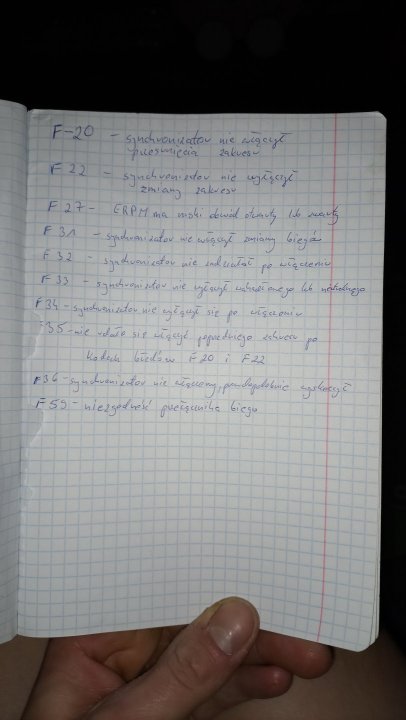 F-20 - synchronizator nie włączył
przesunięcia zakresu
F 22 - synchronizator nie wyłączył
zmiany zakresu
F 27 - ERPM ma niski obwód otwarty lub zwarty
F 31 - synchronizator nie włączył zmiany biegów
F 32 - synchronizator nie zadziałał po włączeniu
F 33 - synchronizator nie wyłączył wstecznego lub
F 34 - synchronizator nie wyłączył się po włączeniu
F 35 - nie udało się włączyć poprzedniego zakresu po
kodach błędów F 20 i F 22
F 36 - synchronizator nie włączony, prawdopodobnie wyskoczył
F 59 - niezgodność przełącznika biegu